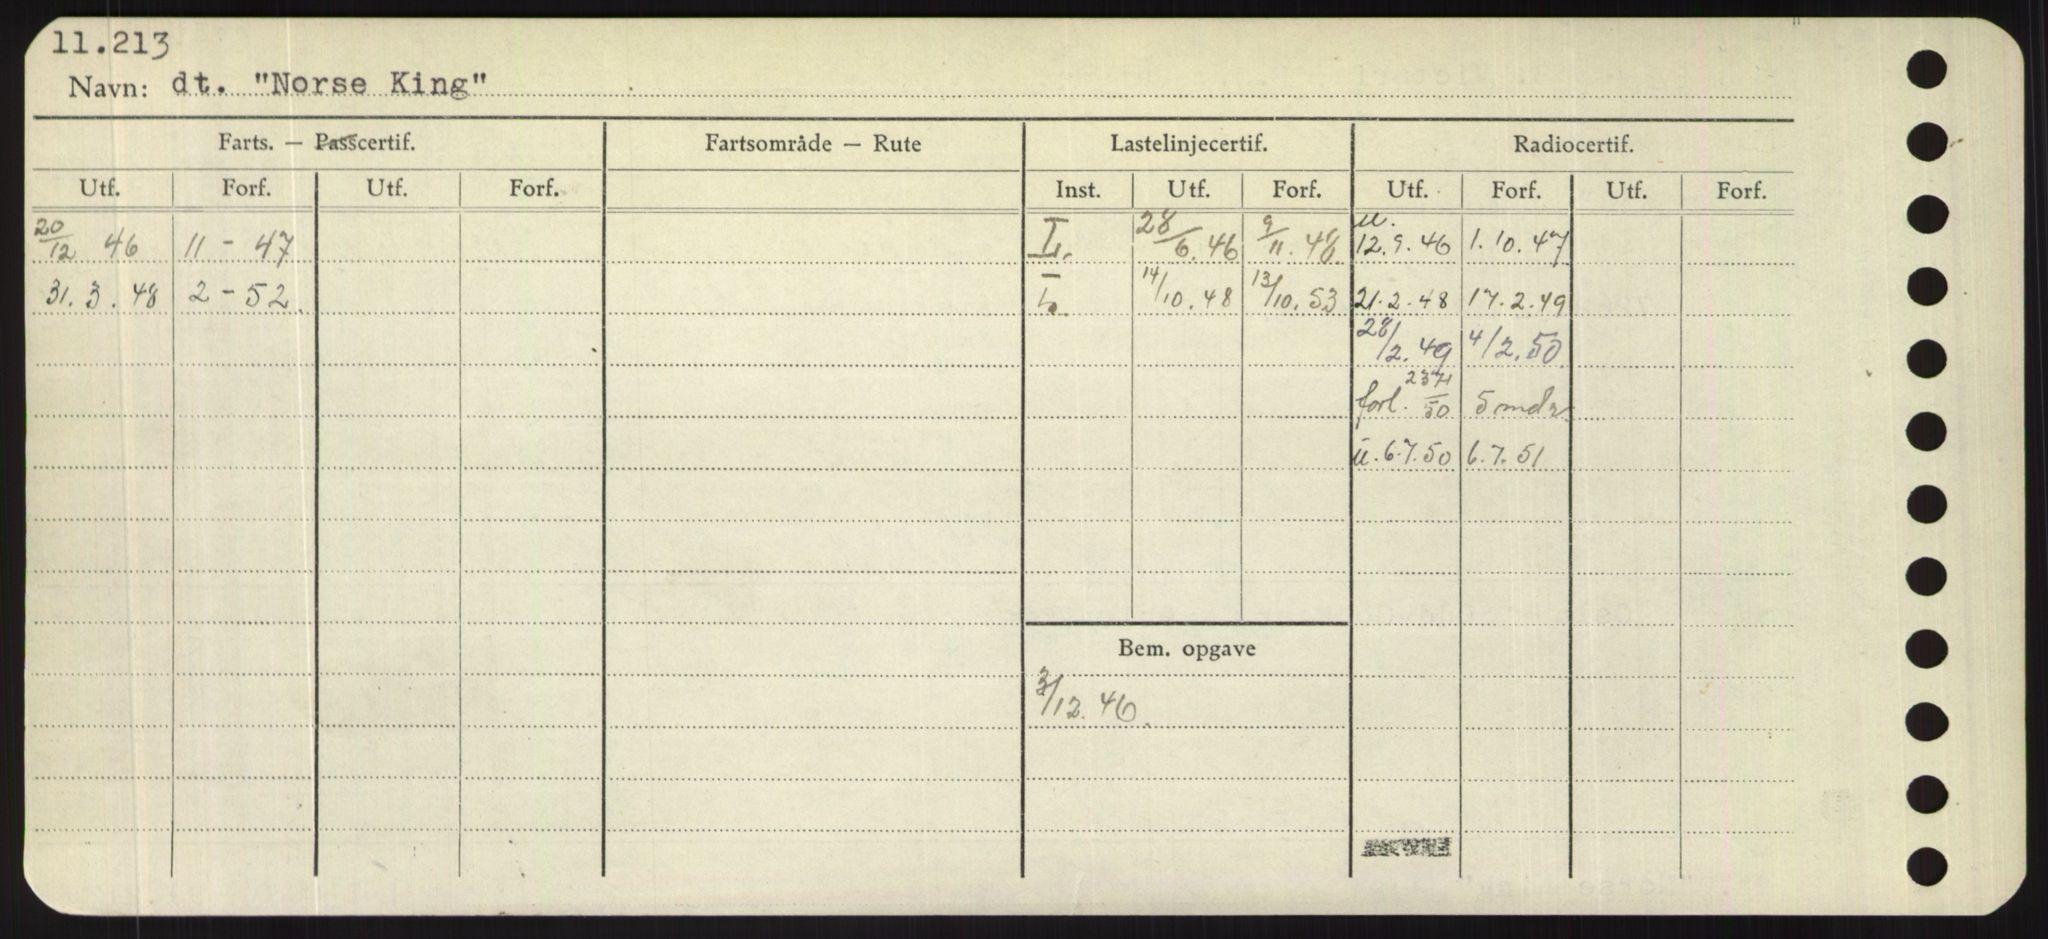 11.213
Navn: dt. "Norse King"
Farts. — Passcertif. Fartsområde — Rute Lastelinjecertif. Radiocertif.
Utf. Forf. Utf. Forf. Inst. Utf. Forf. Utf. Forf. Utf. Forf.
20/12 46 11 - 47 L. 28/6.46 9/11.48 u. 12.9.46 1.10.47
31.3.48 2 - 52 L. 14/10.48 13/10.53 21.2.48 17.2.49
28/2.49 4/2.50
forl. 50 5 mdr
u. 6.7.50 6.7.51
Bem. opgave
3/12.46